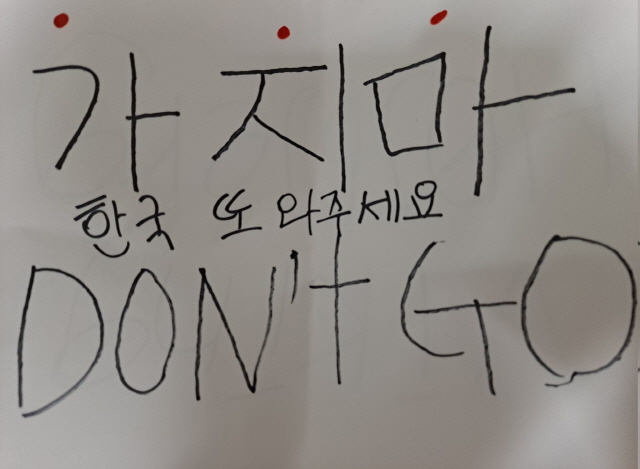 가지마
한국 또 와주세요
DON't GO